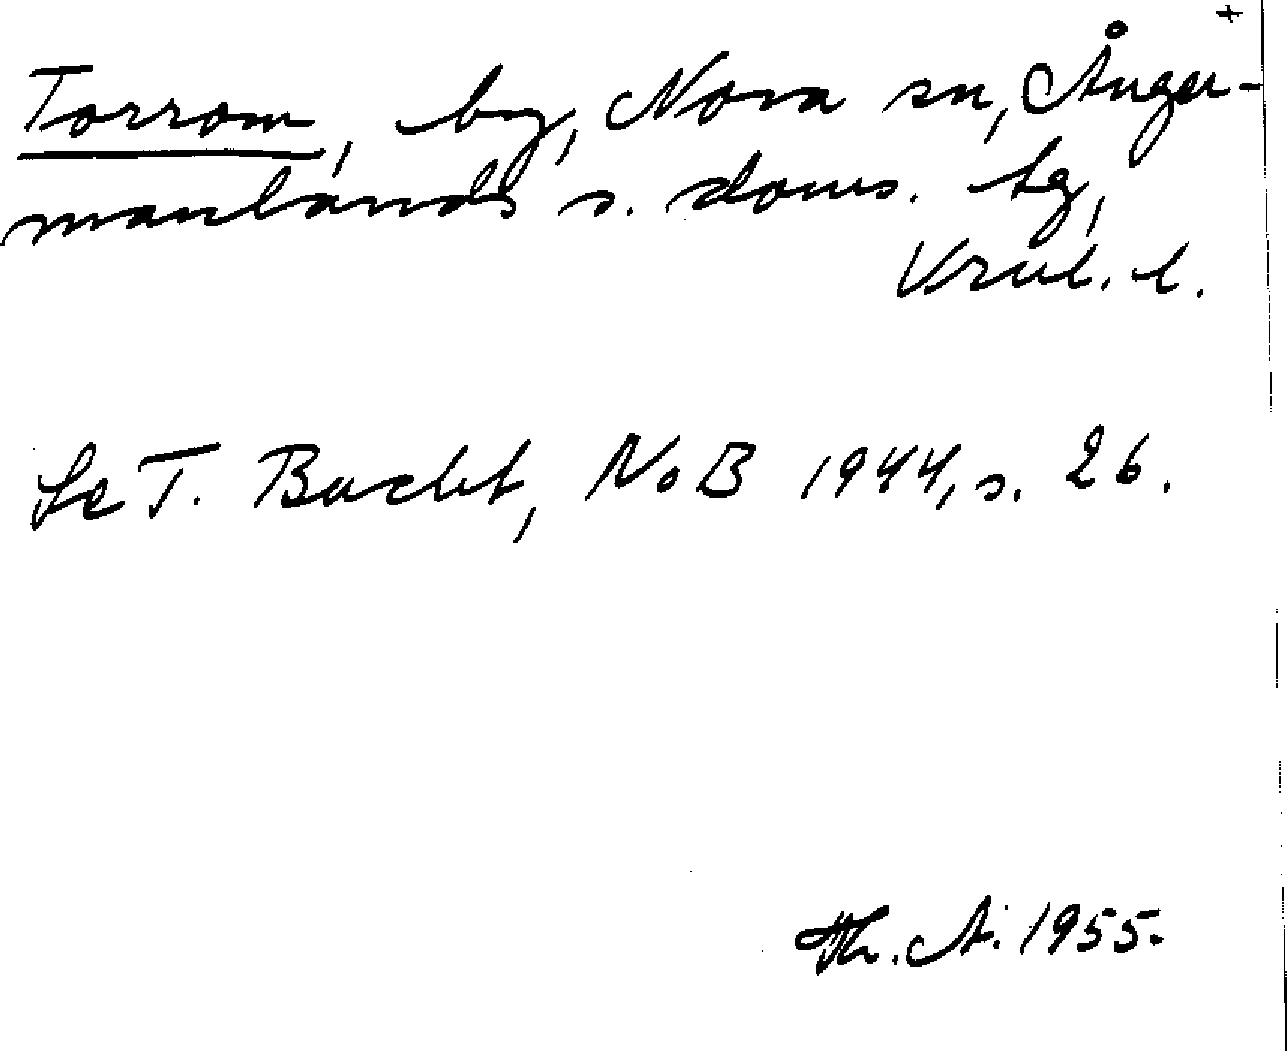 +
Torrom, by, Nora sn, Ånger-
manlands s. doms. tg,
Vrnl. l.
Se T. Bucht, NoB 1944, s. 26.
Th. A. 1955.